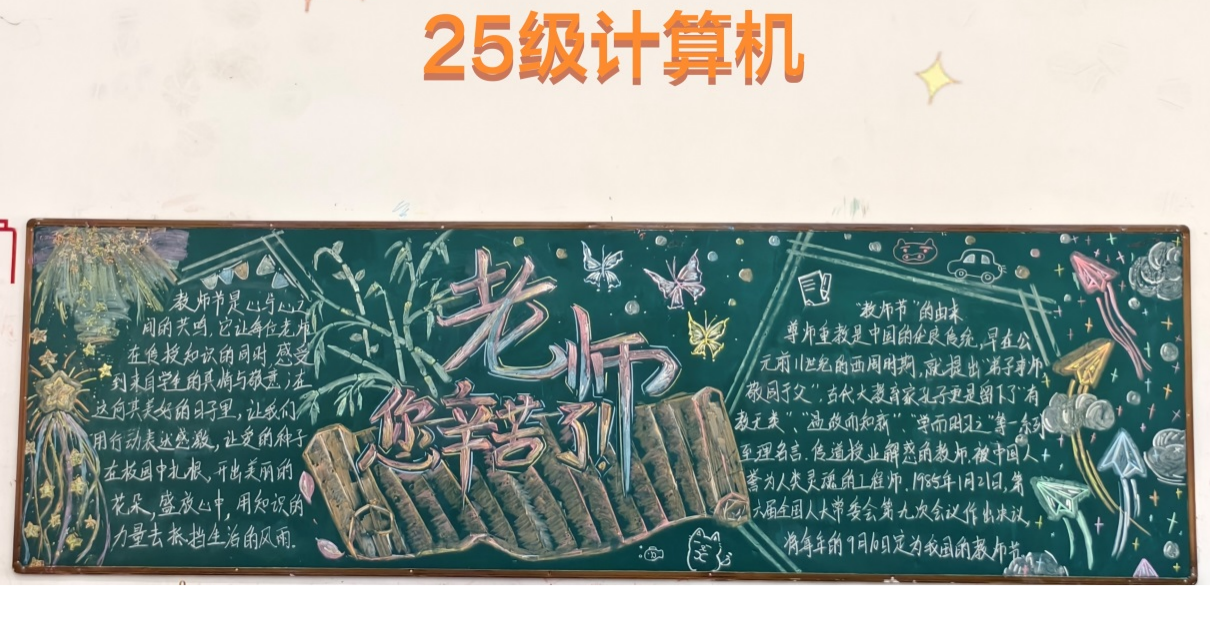 25级计算机
教师节是心与心之
间的共鸣，它让每位老师
在传授知识的同时，感受
到来自学生的真情与敬意；在
这个共美好的日子里，让我们
用行动表达感激，让爱的种子
在校园中扎根，开出美丽的
花朵，盛放心中，用知识的
力量去抵挡生活的风雨.
老师
您辛苦了!
"教师节"的由来
尊师重教是中国的优良传统，早在公
元前11世纪的西周时期，就提出"弟子事师
敬同于父"，古代大教育家孔子更是留下了"有
教无类"、"温故而知新"、"学而时习之"等一系列
至理名言.传道授业解惑的教师，被中国人
誉为人类灵魂的工程师，1985年1月21日，第
六届全国人大常委会第九次会议作出决议，
将每年的9月10日定为我国的教师节